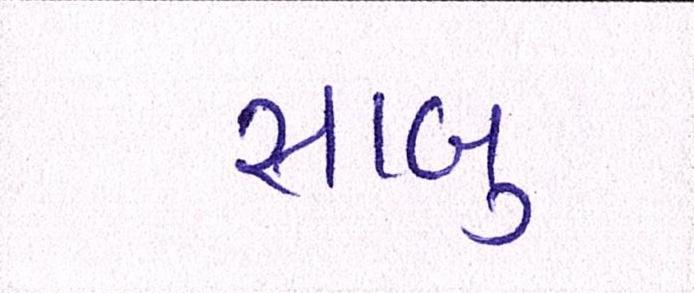 સાબુ